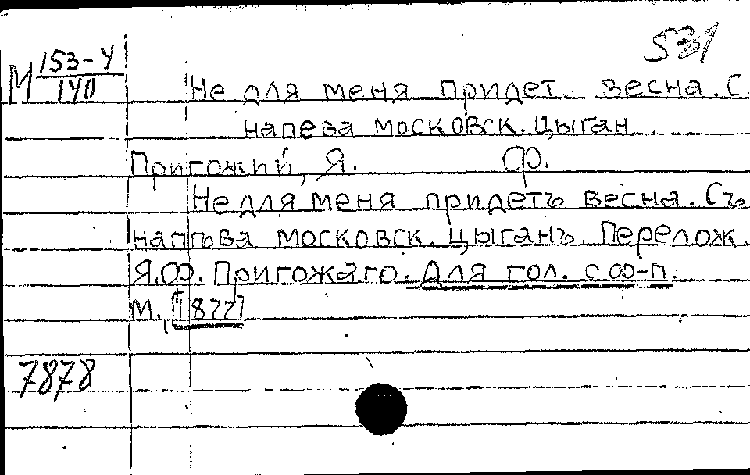 531
М 153-4/140
Не для меня придет весна. С
напева московск. цыган.
Пригожий, Я. Ф.
Не для меня придетъ весна. Съ
напѣва московск. цыганъ. Перелож.
Я.Ф. Пригожаго. Для гол. с ф-п.
М., [1877]
7878